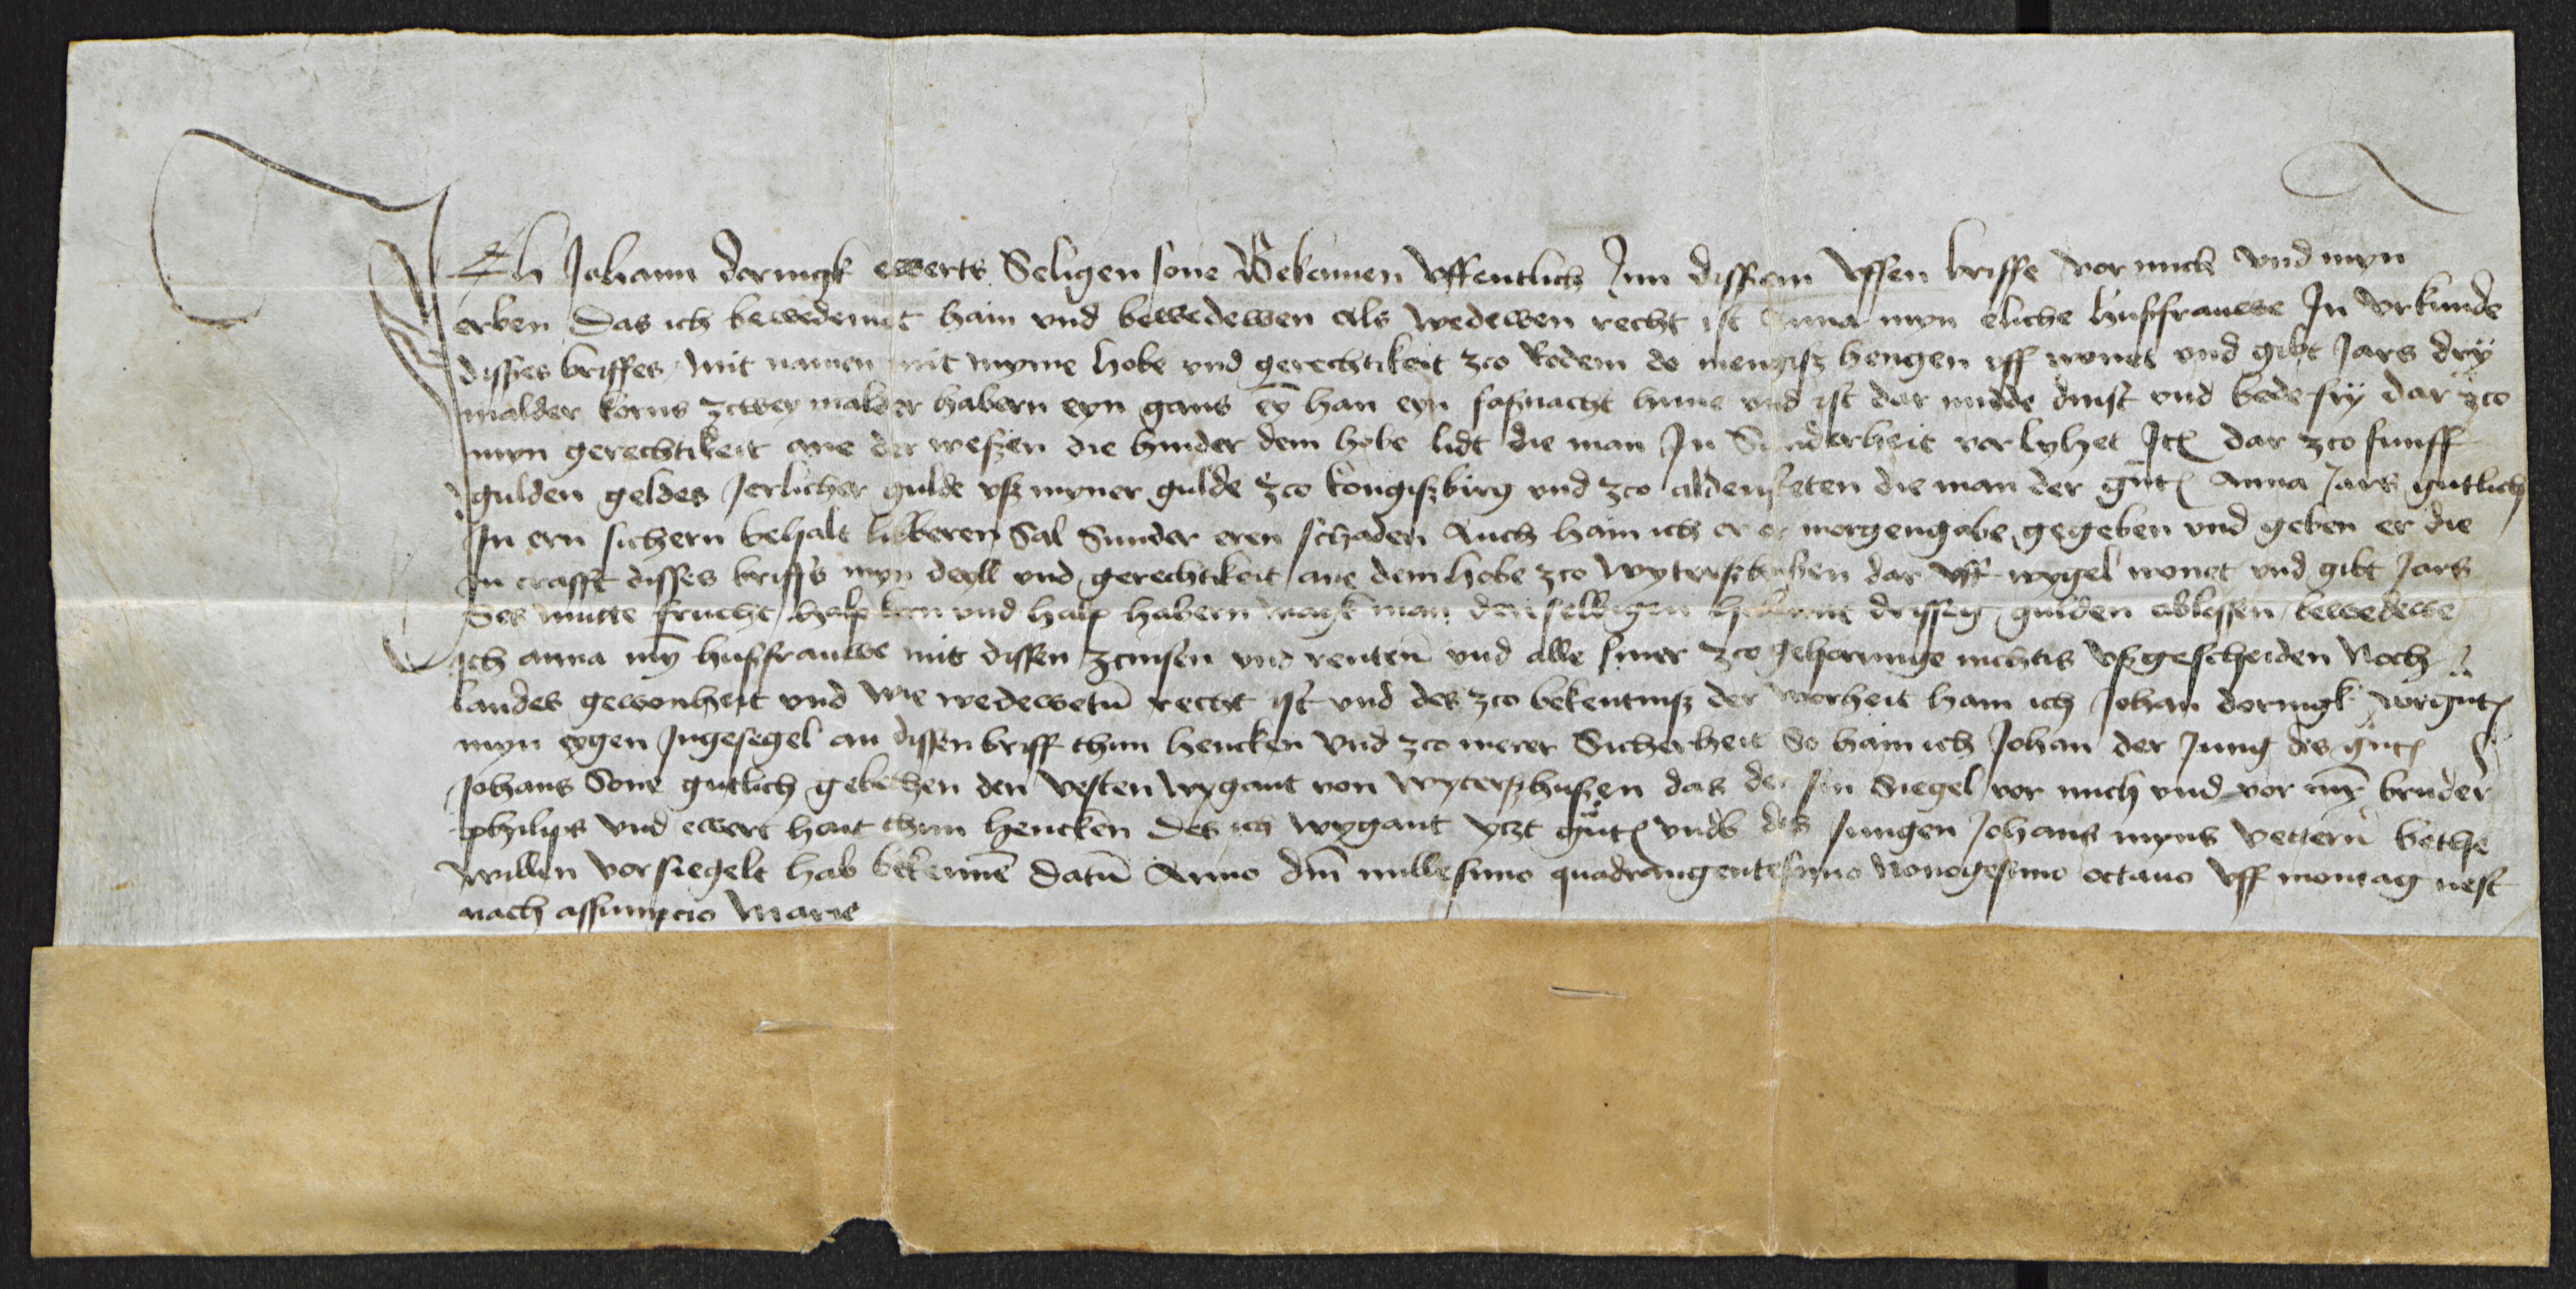 Ich Johann doringk ewerts Seligen sone Bekennen uffentlich Inn dissem uffen briffe vor mich und myn
erben Das ich bewedemet hain und bewedewen als wedewen recht ist Anna myn eliche hußfrauwe In urkunde
disses briffes, mit namen mit myme hobe und gerechtikeit zco Rodem do mengiß hengen uff wonet und gibt Jars dry
malder korns zcwey malder habern eyn gans eȳ han eyn faßnacht hune und ist dar midde dinst und bede fry dar zco
myn gerechtikeit ane der weßen die hinder dem hobe lidt die man In Sunderheit vorlyhet Itē dar zco funff
gulden geldes Jerlicher gulde uß myner gulde zco kongißbirg und zco aldensteten die man der gūtē Anna Jars gutlich
In ern sichern behalt libberen Sal Sunder eren schaden Auch hain ich er er morgengabe gegeben und geben er die
In crafft disses briffs myn deyll und gerechtikeit ane dem hobe zco wyterßhußen dar uff wygel wonet und gibt Jars
Ses mutte frucht halp korn und halp habern magk man denselbigen hob mit drissig gulden ablossen, bewedewe
Ich anna mȳ hußfrauwe mit dissen zcinsen und rentenn und alle siner zco gehorunge nichtis ußgescheiden Noch
landes gewonheit und wie wedewetū recht ist und des zco bekentniß der worheit hain ich Johan doringk vorgūtē
myn eygen Ingesegel an dissen briff thun hencken Und zco merer Sicherheit So hain ich Johan der Jung des gūtē
Johans Sone gutlich gebethen den vesten wygant von wyterßhußen das der sin Siegel vor mich und vor mȳ bruder
philips und ewert hait thun hencken Des ich wygant yczt gūtē umb des Jungen Johans myns vettern bethe
willen vorsiegelt hab bekennē Datū Anno dm̄ millesimo quadrangentesimo Nonogesimo octauo Uff montag nest
nach assumpcio Marie